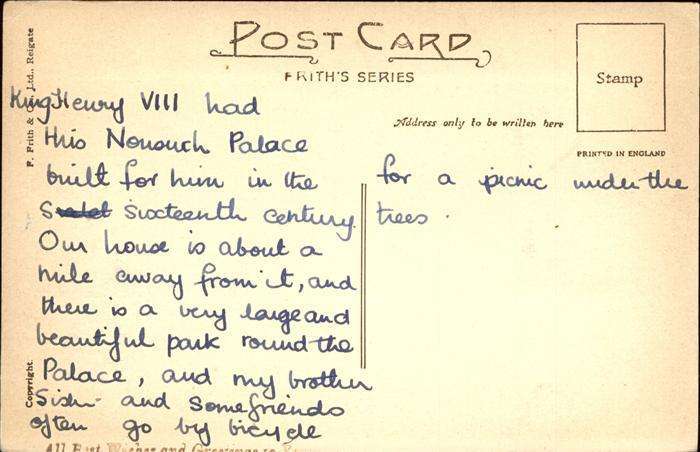 POST CARD
FRITH'S SERIES
Stamp
Address only to be written here
PRINTED IN ENGLAND
F. Frith & Co., Ltd., Reigate
Copyright.
King Henry VIII had
this Nonsuch Palace
built for him in the
sixteenth century.
Our house is about a
mile away from it, and
there is a very large and
beautiful park round the
Palace, and my brother
Sister and some friends
often go by bicycle
for a picnic under the
trees.
All Best Wishes and Greetings to